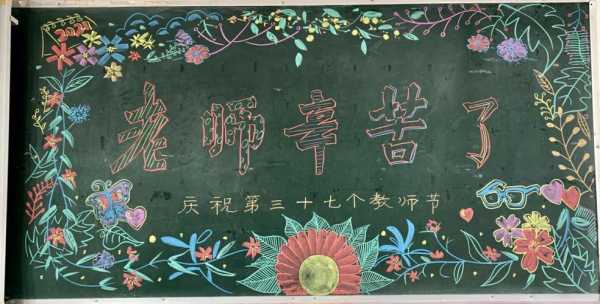 2021
老师辛苦了
庆祝第三十七个教师节